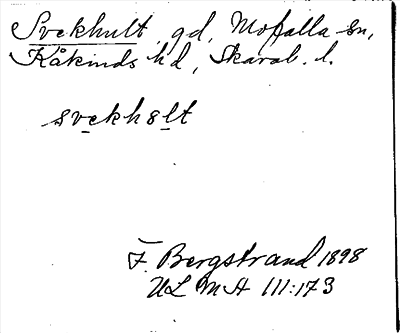 Svekhult, gd, Mofalla sn,
Kåkinds hd, Skarab. l.
svekhslt
F. Bergstrand 1898
ULMA 111:173